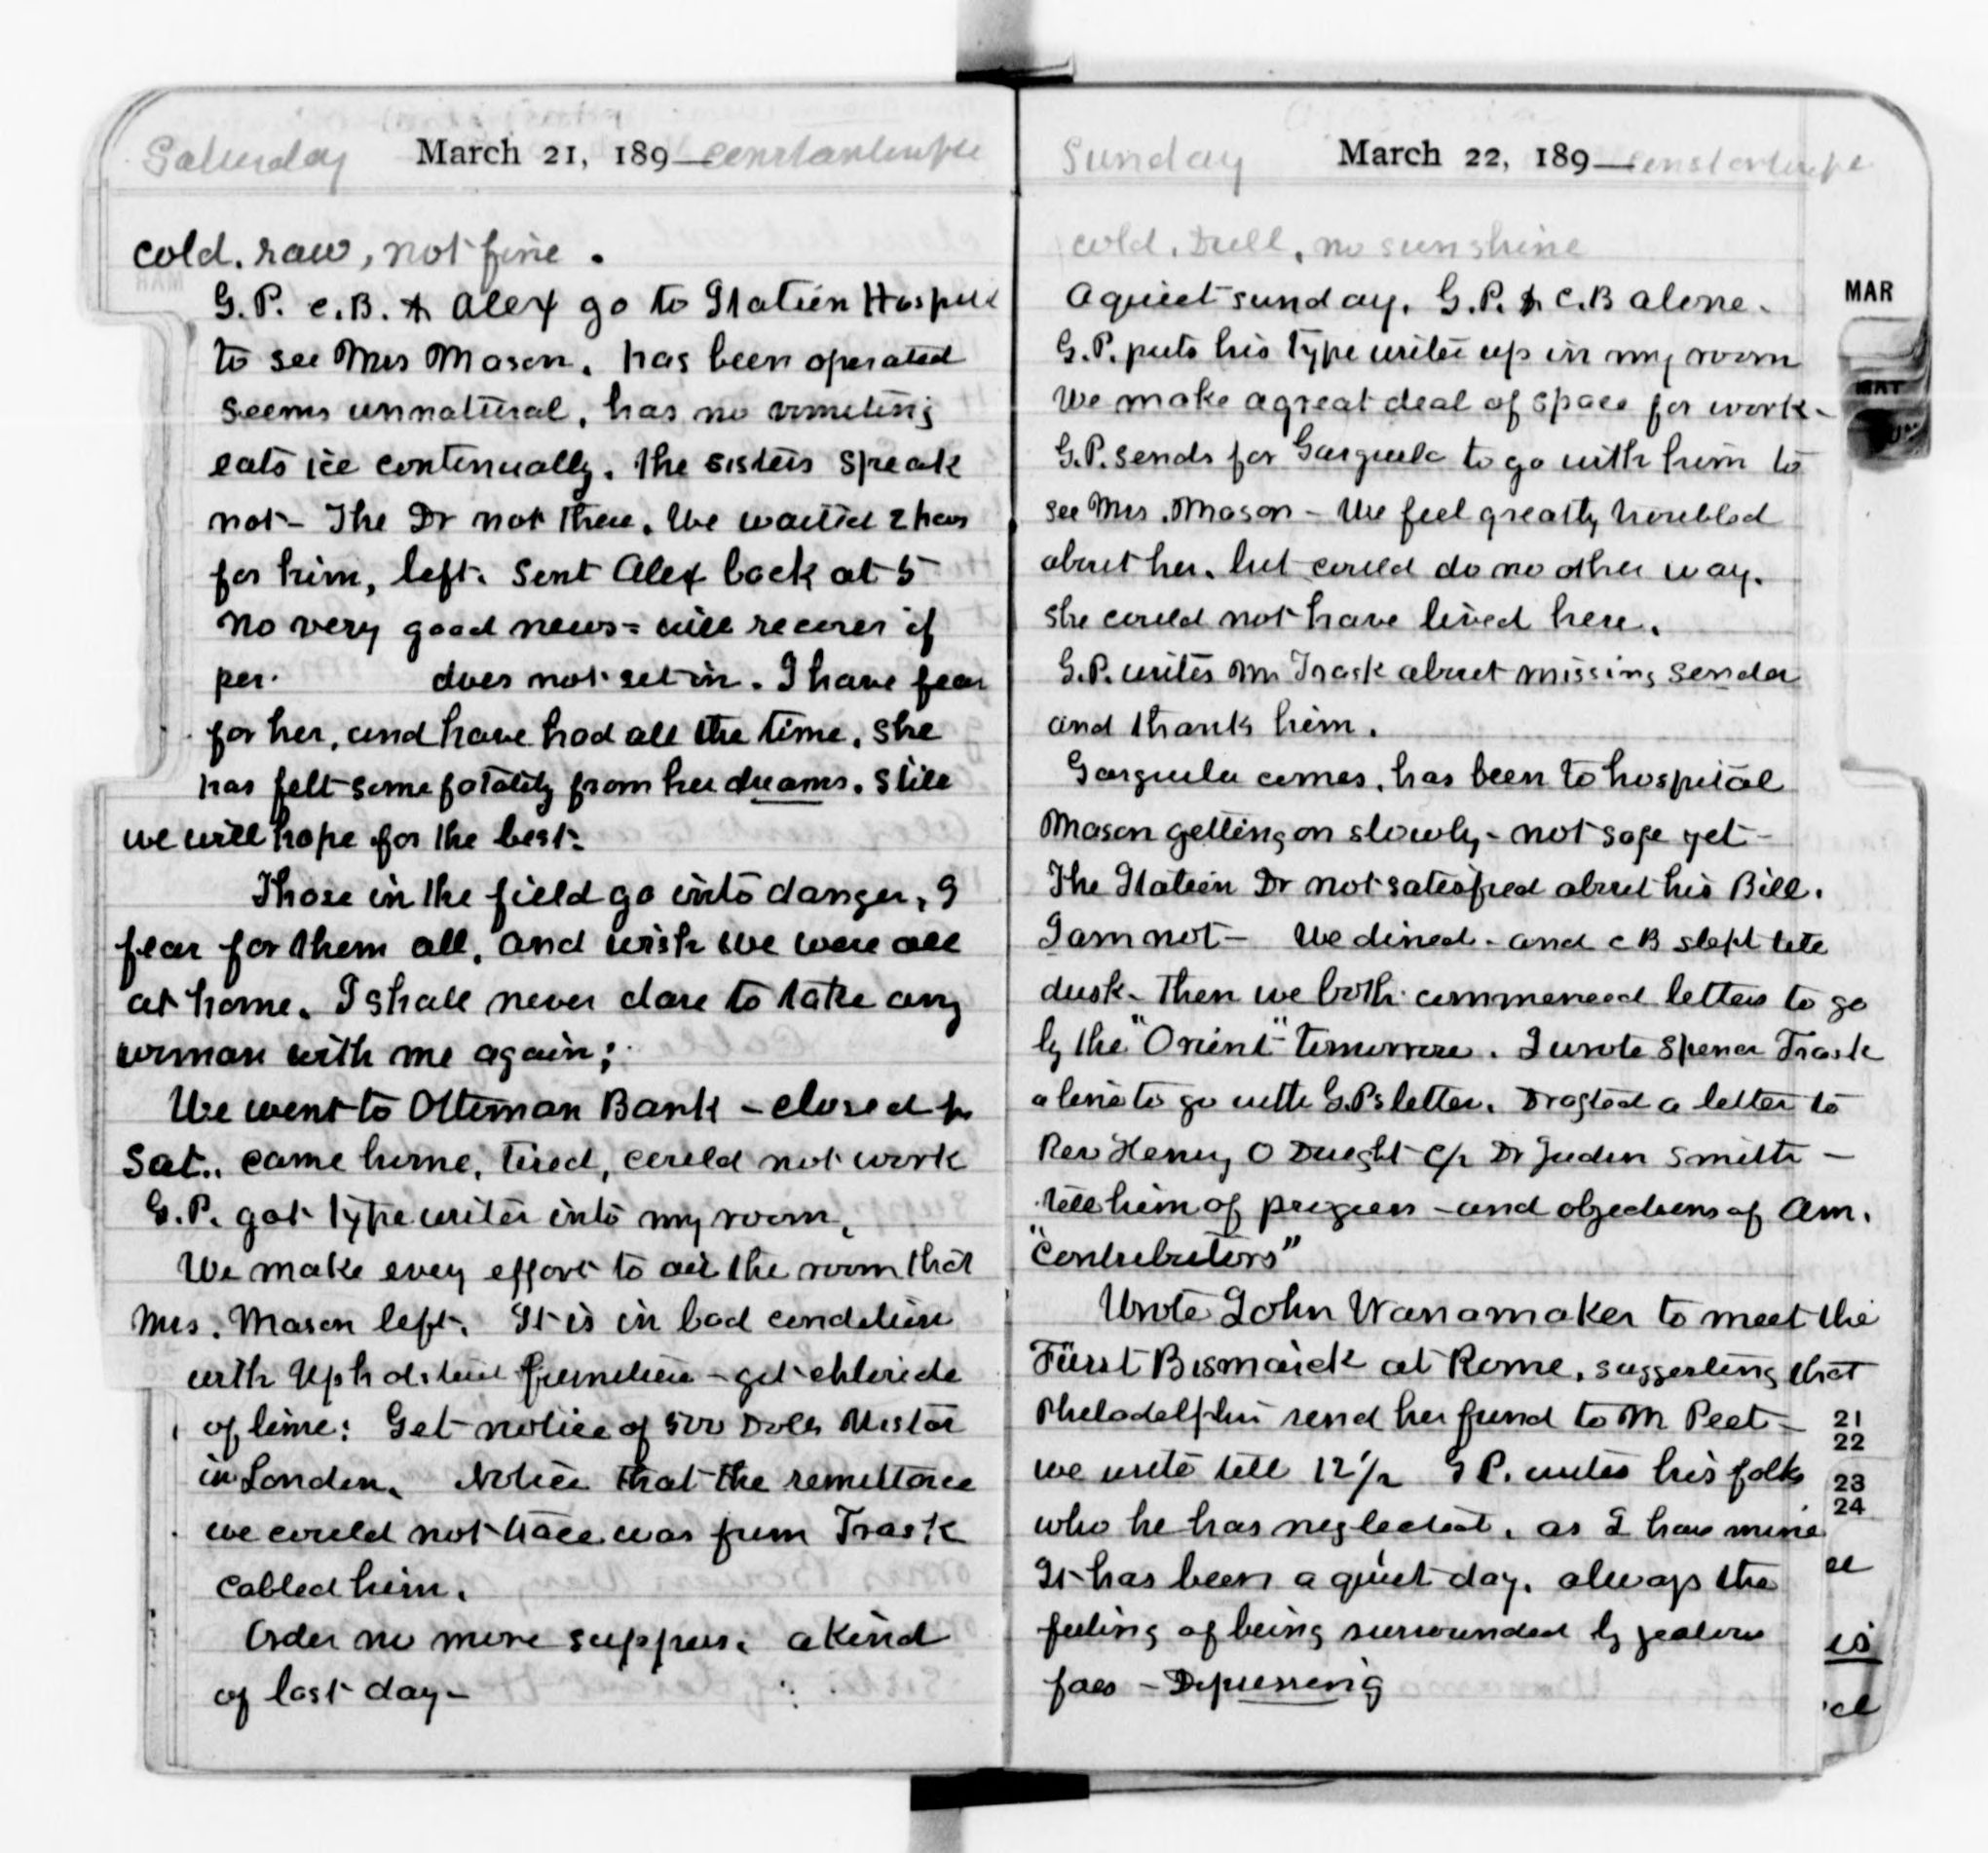 Saturday March 21, 189— Constantinople
cold. raw, not fine.
G. P. C. B. & Alex go to Italien Hospital
to see Mrs Mason. has been operated
seems unnatural, has no vomiting
eats ice continually. the sisters speak
not – The Dr not there. We waited 2 hours
for him, left. Sent Alex back at 5
No very good news = will recover if
per. does not set in. I have fear
for her, and have had all the time, she
has felt some fatality from her dreams. Still
we will hope for the best.
Those in the field go into danger, I
fear for them all, and wish we were all
at home. I shall never dare to take any
woman with me again;
We went to Ottoman Bank – closed for
Sat.. came home, tired, could not work
G.P. got typewriter into my room,
We make every effort to air the room that
Mrs. Mason left. It is in bad condition
with furniture – get chloride
of lime: Get notice of 500 Dolls
in London. Notice that the remittance
we could not trace was from Trask
Cabled him.
Order no more suppers. a kind
of last day –
Sunday March 22, 189— Constantinople
cold. Dull, no sunshine
A quiet sunday. G.P. & C.B alone.
G.P. puts his typewriter up in my room
We make a great deal of space for work –
G.P. sends for Gargiula to go with him to
see Mrs. Mason – We feel greatly troubled
about her. but could do no other way.
She could not have lived here.
G.P. writes Mr Trask about missing sender
and thank him.
Gargiula comes, has been to hospital
Mason getting on slowly – not safe yet –
The Italien Dr not satisfied about his Bill.
I am not – We dined – and CB slept till
dusk – Then we both commenced letters to go
by the "Orient" tomorrow. I wrote Spencer Trask
a line to go with G.Ps letter. Drafted a letter to
Rev Henry O Dwight c/o Dr Judson Smith –
tell him of progress – and objections of Am.
"Contributors"
Wrote John Wanamaker to meet the
Fürst Bismarck at Rome. suggesting that
Philadelphia send her fund to M Peet –
we write till 12½ G P. writes his folks
who he has neglected, as I have mine
It has been a quiet day. always the
feeling of being surrounded by jealous
foes – Depressing
MAR
MAY
21
22
23
24